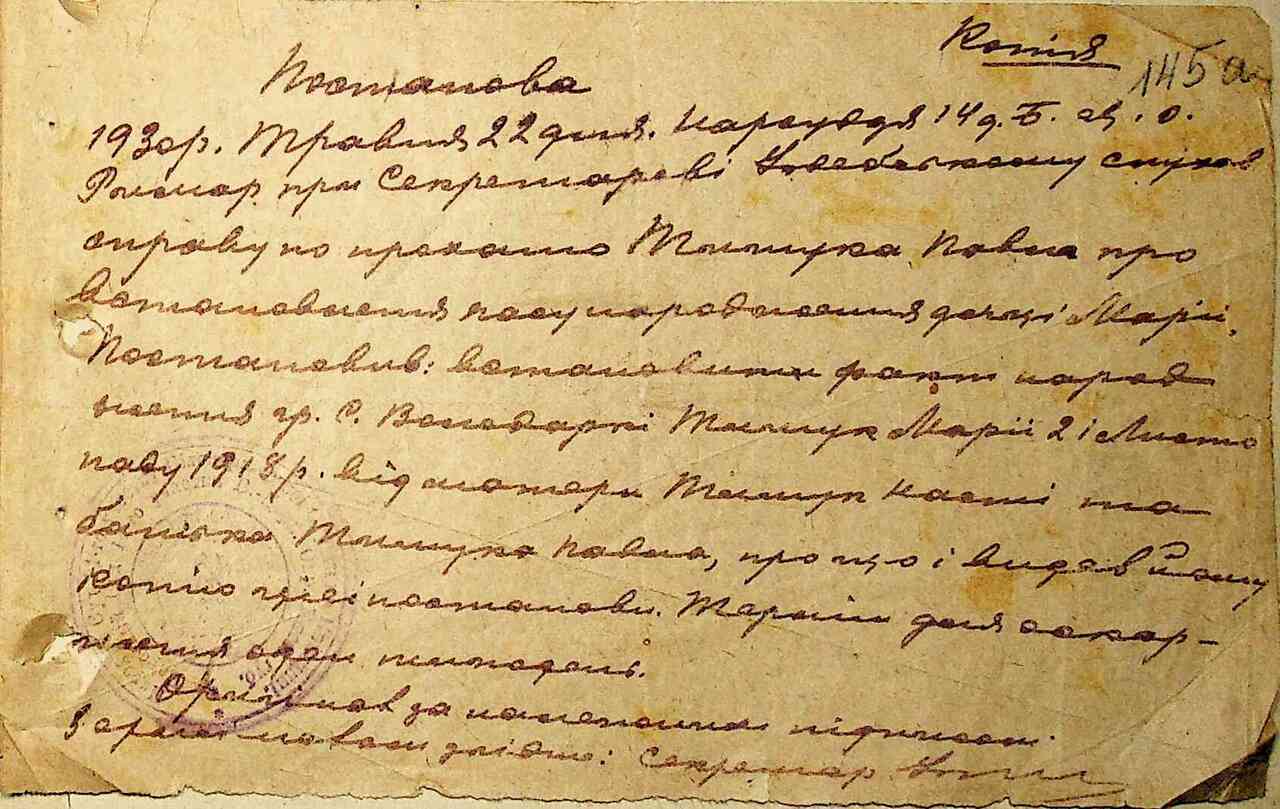 Копія
145 а
Постанова
1930 р. Травня 22 дня. Нарсуддя 14 д. Б. Ц. О.
при Секретареві слухав
справу по проханю Тимчука Павла про
встановлення часу народження дочці Марії,
Постановив: встановити факт народ
ження гр. С. Володаркі Тимчук Марії 21 Листо
паду 1918 р. від матери Тимчук Насті та
батька Тимчука Павла, про що і видав йому
копію цієі постанови. Термін для оскар-
ження один тиждень.
Оригінал за належними підписамі
З оригіналом згідно: Секретар